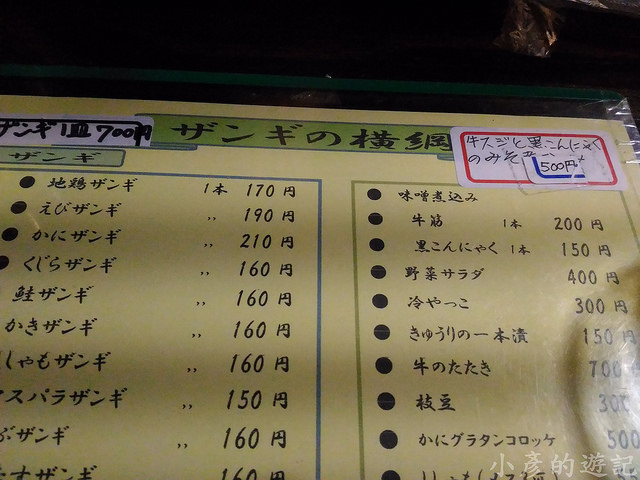 ザンギ1皿700円
ザンギの横綱
牛スジと黒こんにゃく
のみそ
500円
ザンギ
地鶏ザンギ 1本 170円
えびザンギ 〃 190円
かにザンギ 〃 210円
くじらザンギ 〃 160円
鮭ザンギ 〃 160円
かきザンギ 〃 160円
ししゃもザンギ 〃 160円
スパラザンギ 〃 150円
ぶザンギ 〃 160円
すザンギ 〃 160円
味噌煮込み
牛筋 1本 200円
黒こんにゃく 1本 150円
野菜サラダ 400円
冷やっこ 300円
きゅうりの一本漬 150円
牛のたたき 700
枝豆 300
かにグラタンコロッケ 500
小彥的遊記